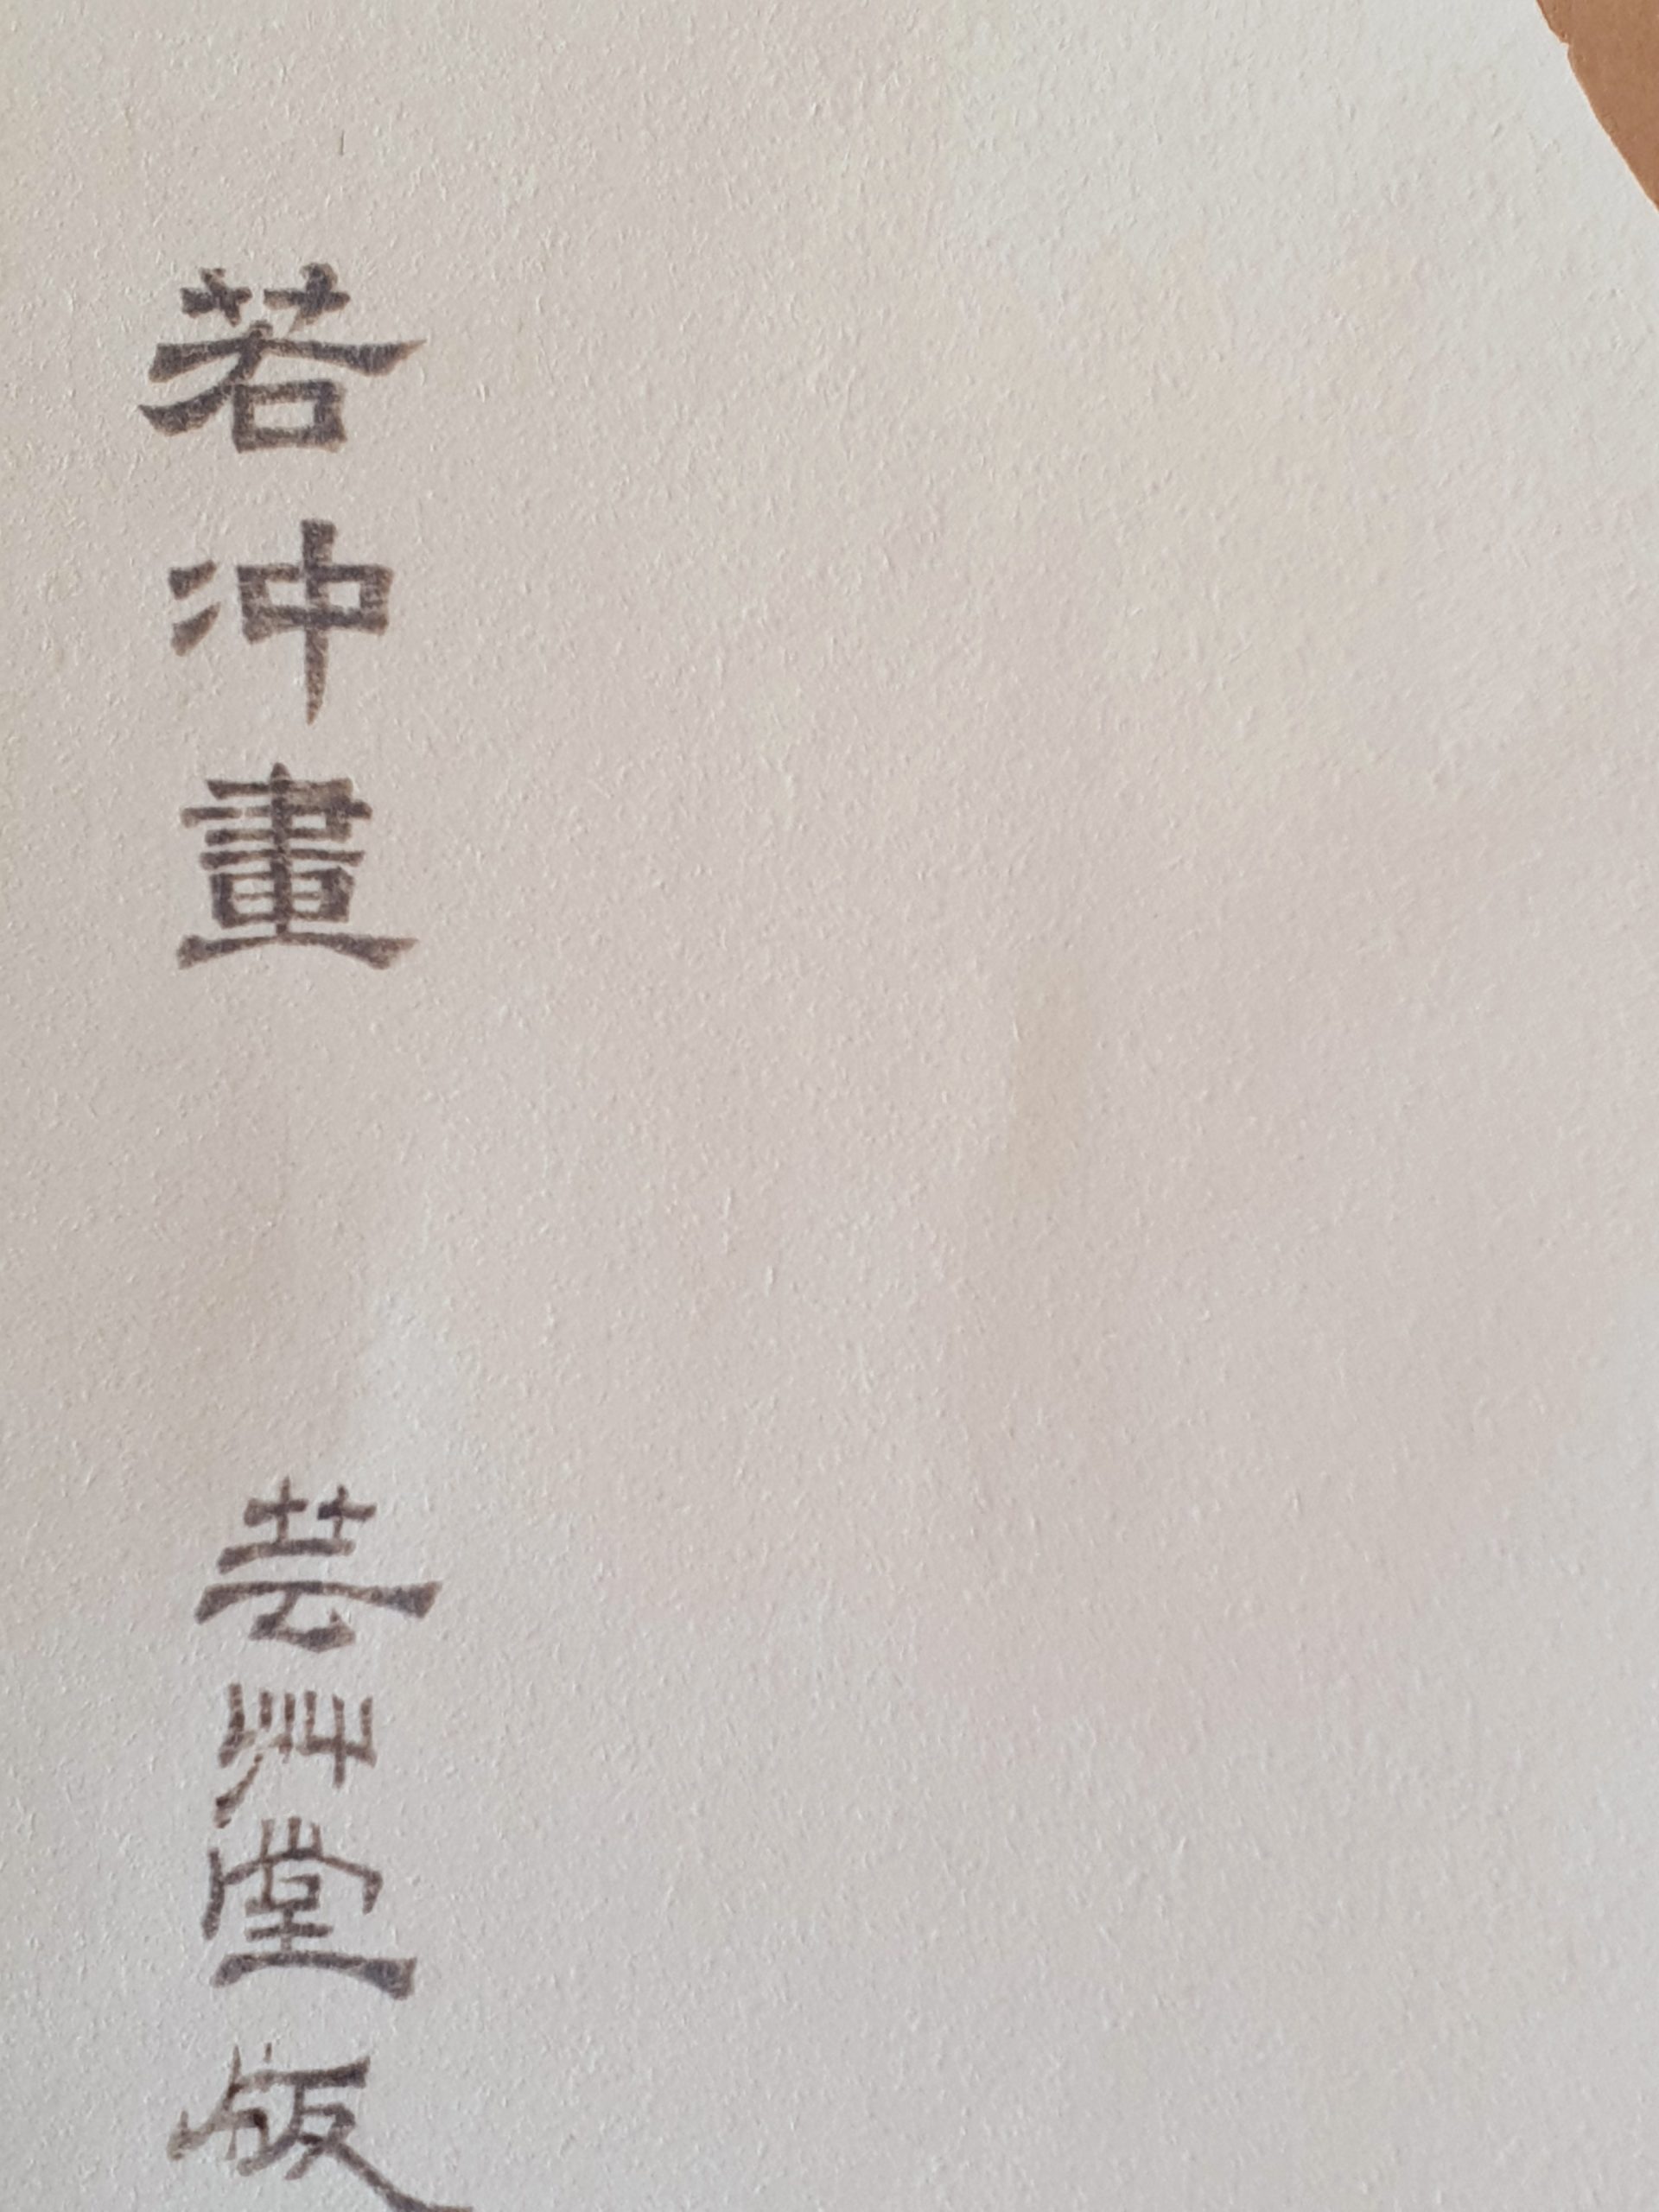 若冲畫
芸艸堂版